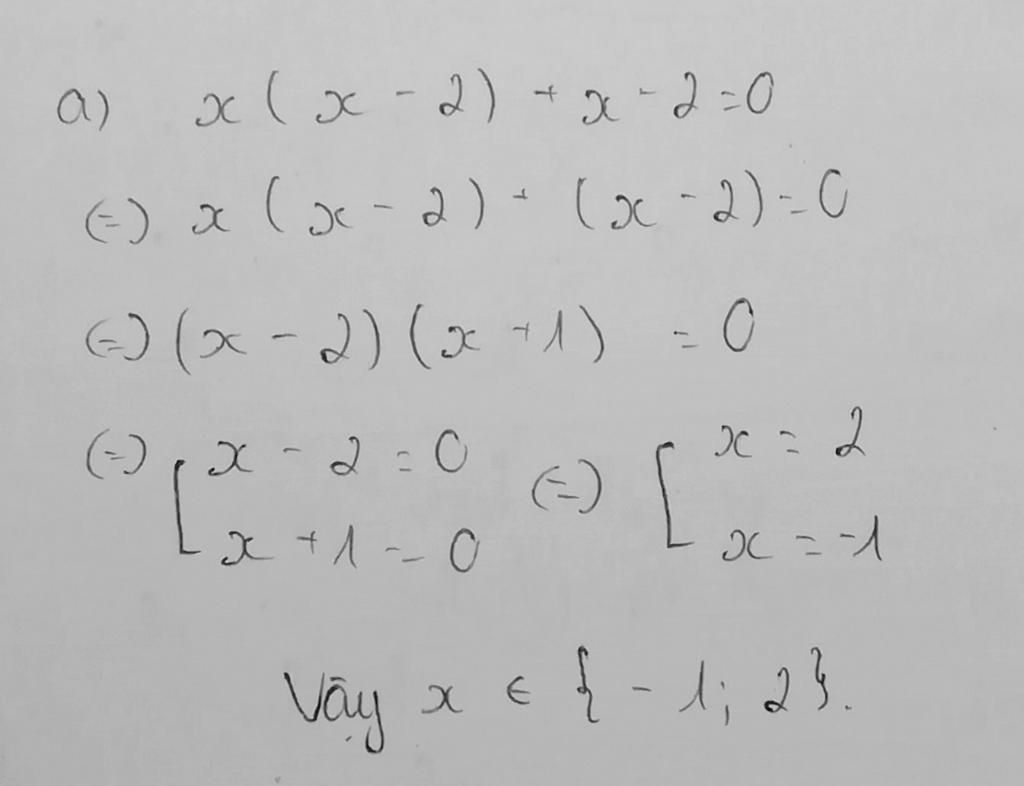 a) x(x - 2) + x - 2 = 0
(=) x(x - 2) + (x - 2) = 0
(=) (x - 2)(x + 1) = 0
(=) [ x - 2 = 0 (=) [ x = 2
x + 1 = 0 x = -1
Vậy x ∈ { - 1; 2}.